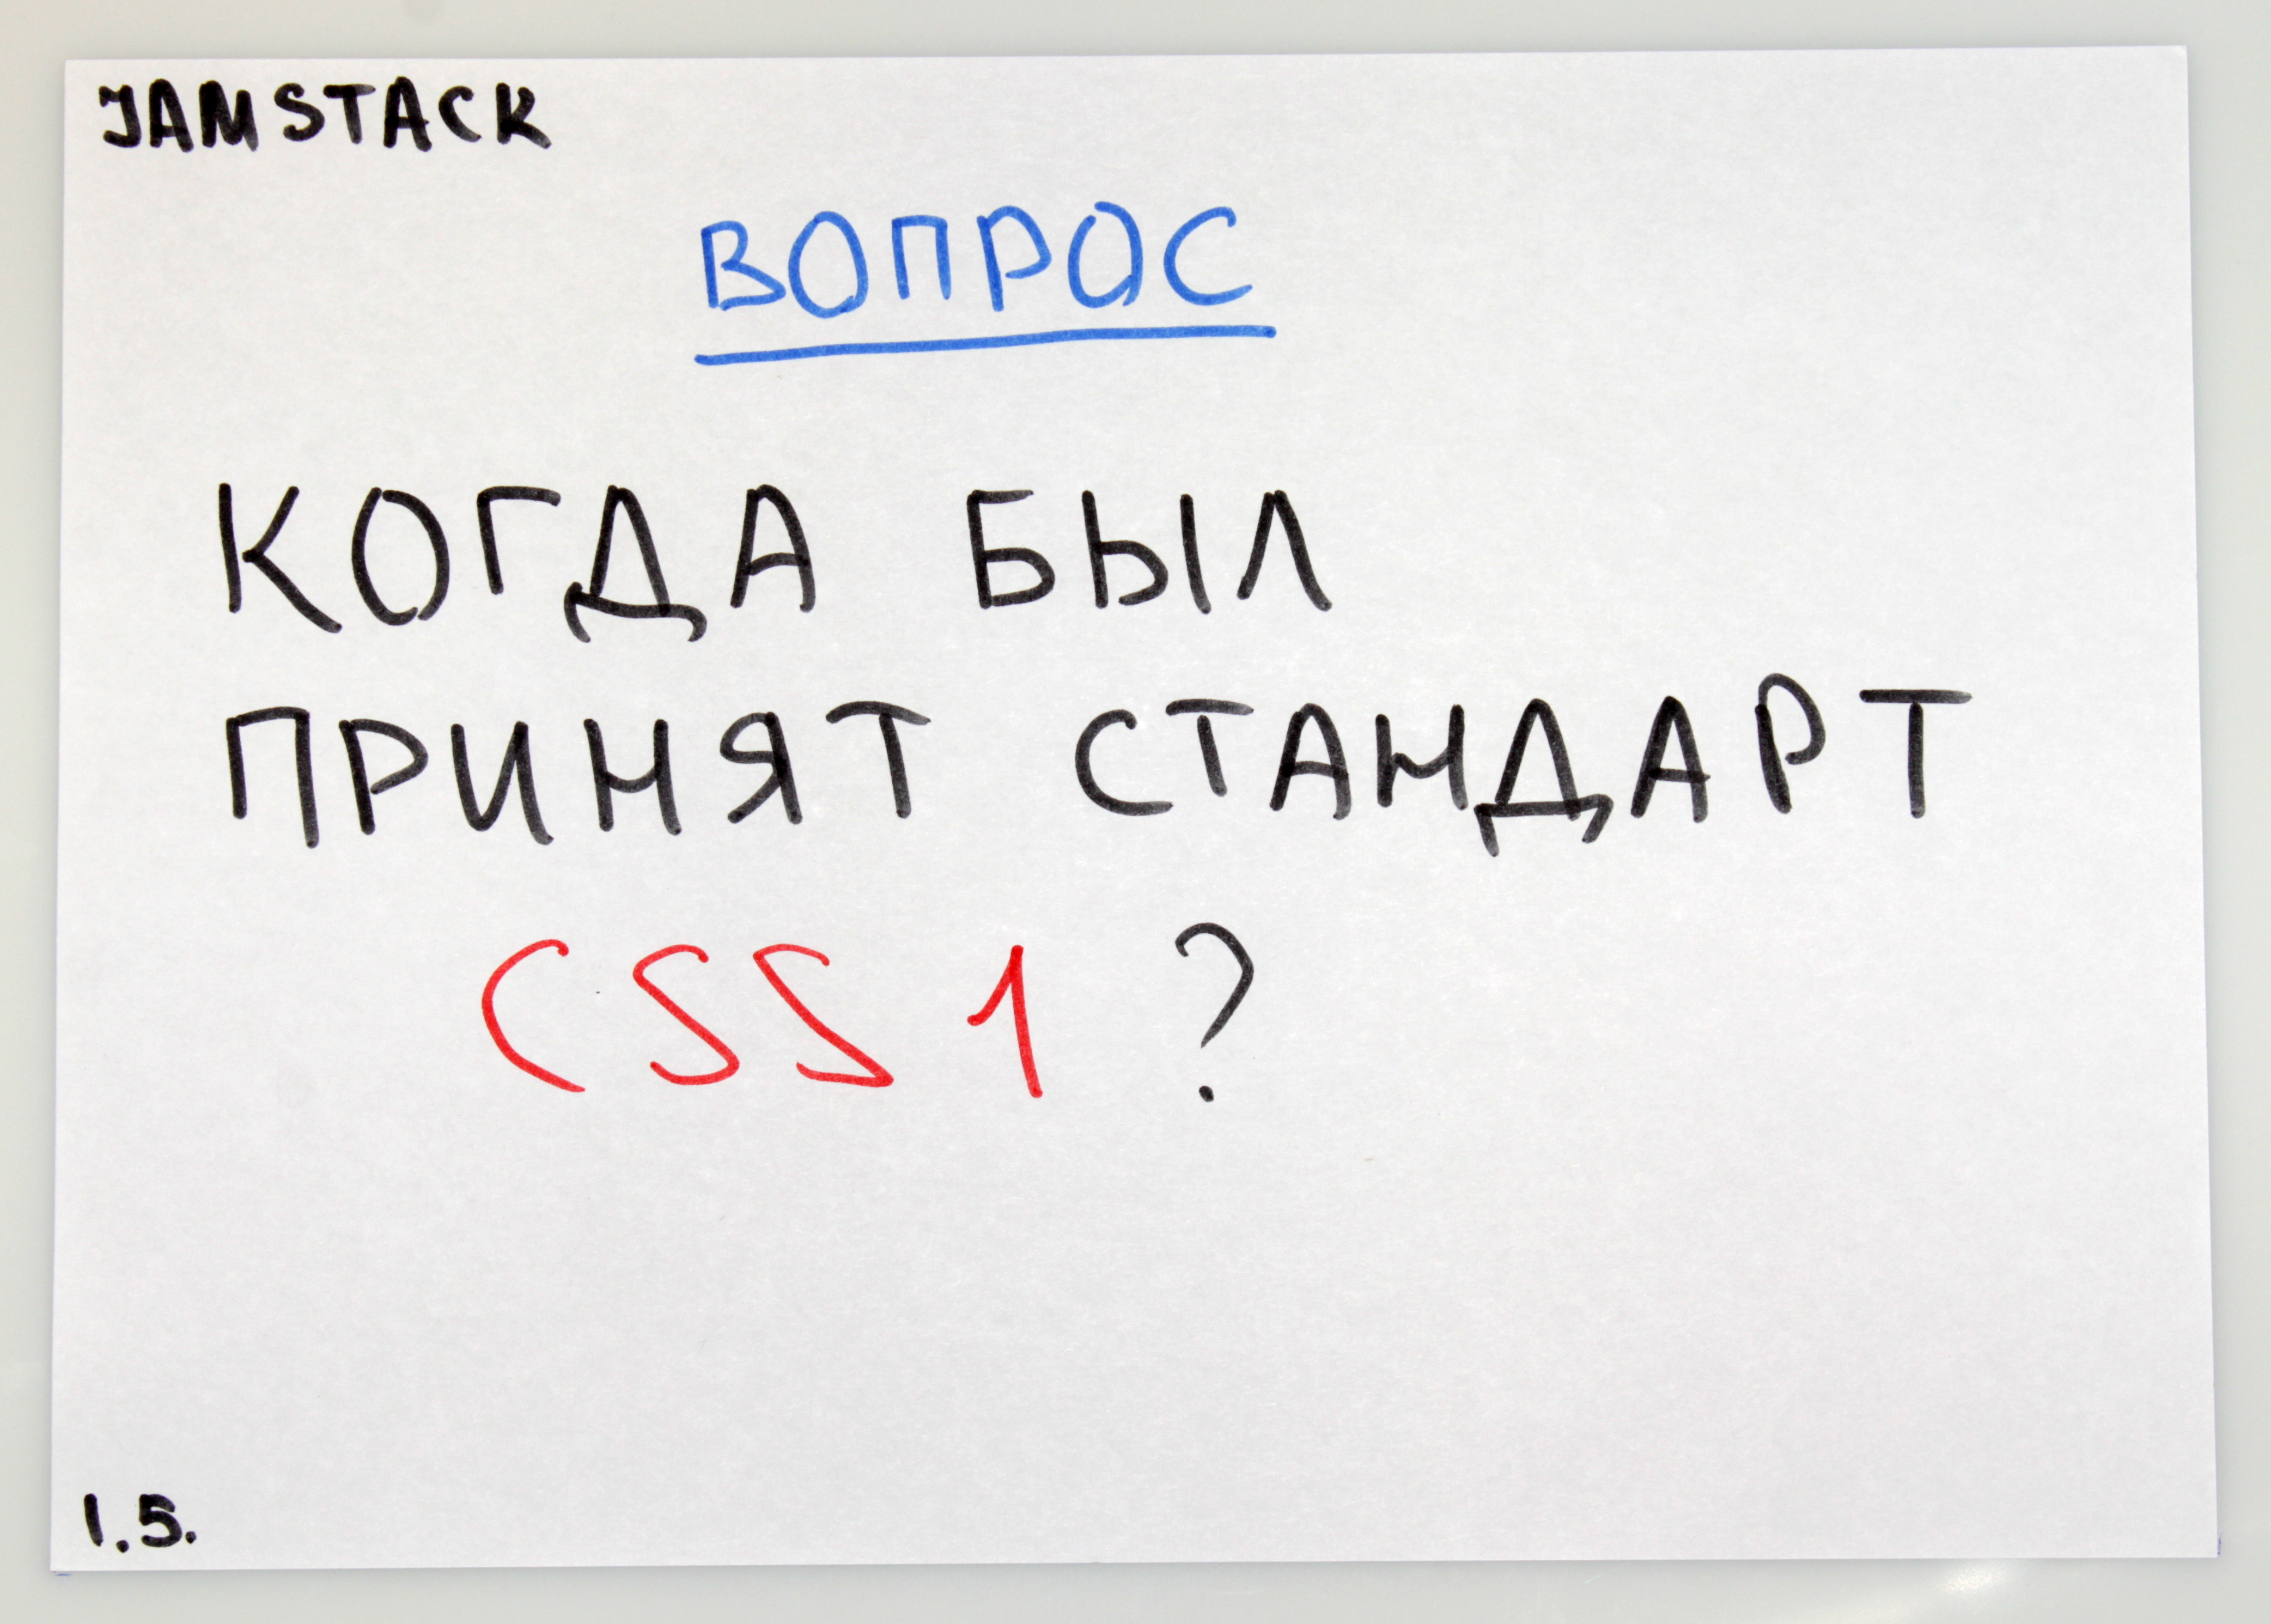 JAMSTACK
ВОПРОС
КОГДА БЫЛ
ПРИНЯТ СТАНДАРТ
CSS 1 ?
1.5.